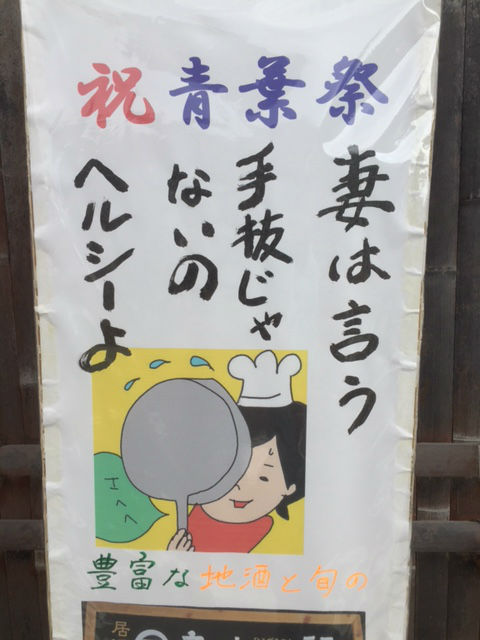 祝 青葉祭
妻は言う
手抜じゃ
ないの
ヘルシーよ
エヘヘ
豊富な地酒と旬の
居